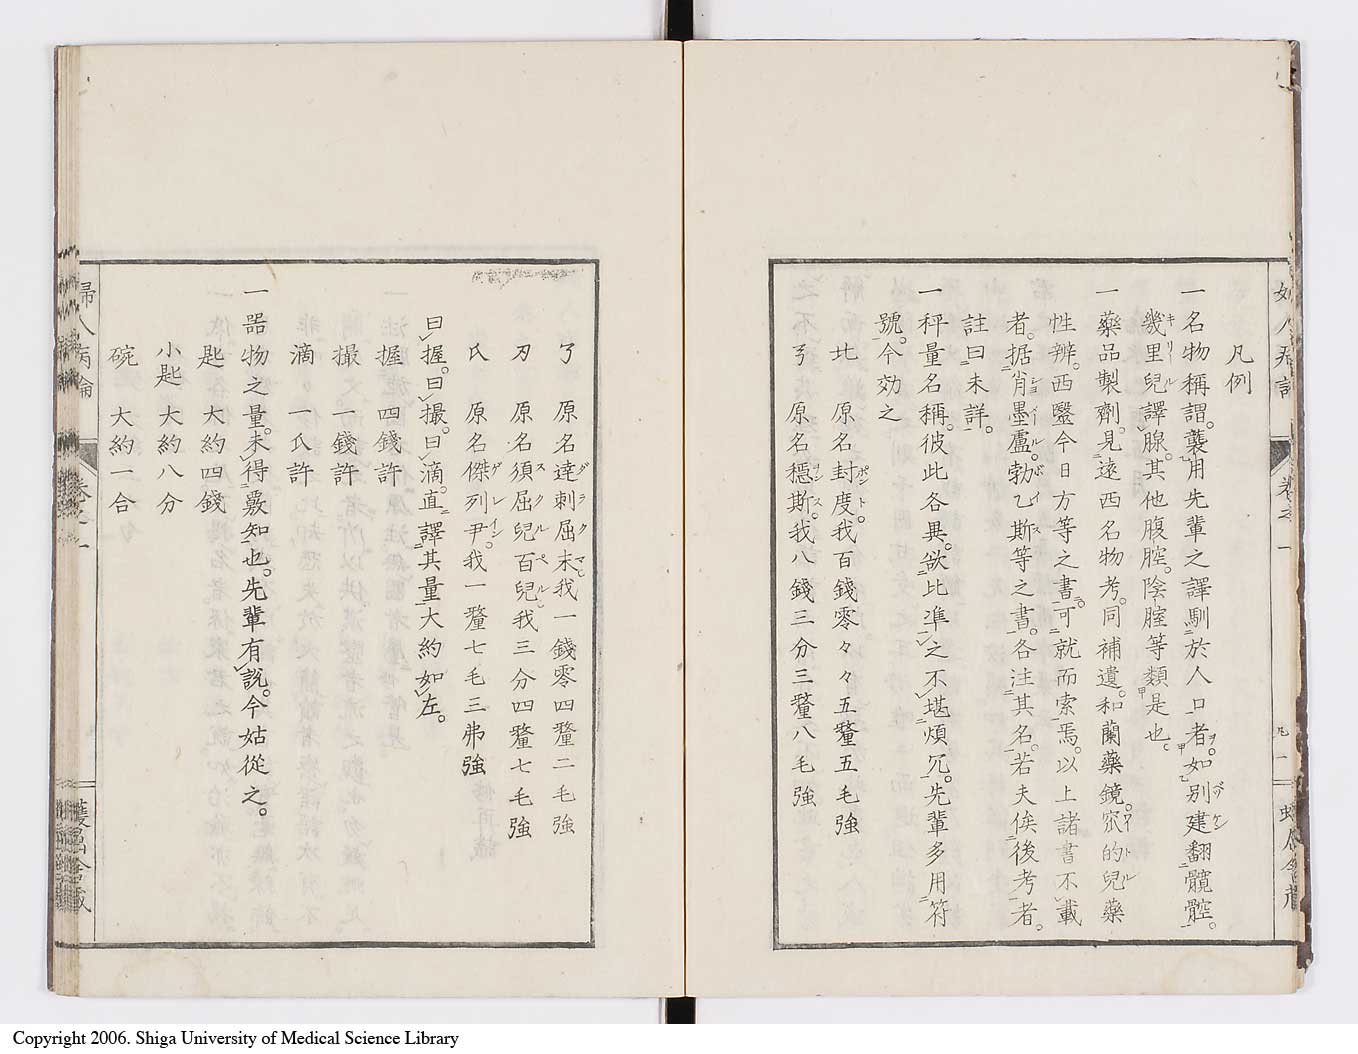 凡例
一名物稱謂。襲用先輩之譯馴於人口者。如別建翻髖腔。
幾里兒譯腺。其他腹腔。陰腟等類是也。
一藥品製劑。見遠西名物考。同補遺。和蘭藥鏡。窊的兒藥
性辨。西醫今日方等之書。可就而索焉。以上諸書不載
者。据肖墨盧。勃乙斯等之書。各注其名。若夫俟後考者。
註曰未詳。
一秤量名稱。彼此各異。欲比準之不堪煩冗。先輩多用符
號。今効之
原名封度。我百錢零々々五釐五毛強
原名穩斯。我八錢三分三釐八毛強
原名達刺屈末。我一錢零四釐二毛強
原名須屈兒百兒。我三分四釐七毛強
原名傑列尹。我一釐七毛三弗強
曰握。曰撮。曰滴。直譯其量大約如左。
握 四錢許
撮 一錢許
滴 一許
一器物之量。未得覈知也。先輩有說。今姑從之。
匙 大約四錢
小匙 大約八分
碗 大約一合
婦人病論 卷之一
Copyright 2006. Shiga University of Medical Science Library